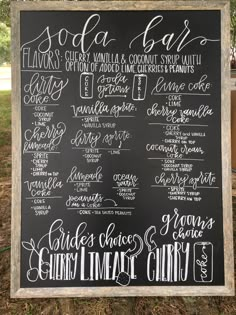 soda bar
FLAVORS: CHERRY, VANILLA & COCONUT SYRUP WITH
OPTION OF ADDED LIME CHERRIES & PEANUTS
dirty coke
- COKE
- COCONUT
- LIME
Cherry limeade
- SPRITE
- CHERRY
- LIME
Vanilla coke
- COKE
- VANILLA
SYRUP
soda options
COKE
Vanilla sprite
- SPRITE
- VANILLA
dirty sprite
- SPRITE
- COCONUT
- LIME
limeade
- SPRITE
- LIME
ocean water
- SPRITE
- COCONUT
peanuts in a coke
- COKE
- INSTRUCTED PEANUTS
lime coke
- COKE
- LIME
cherry vanilla coke
- COKE
- CHERRY AND
VANILLA SYRUP
coconut cream coke
- COKE
- COCONUT
cherry sprite
- SPRITE
- CHERRY SYRUP
- CHERRY ON TOP
brides choice
CHERRY LIMEADE
groom's choice
CHERRY
coke